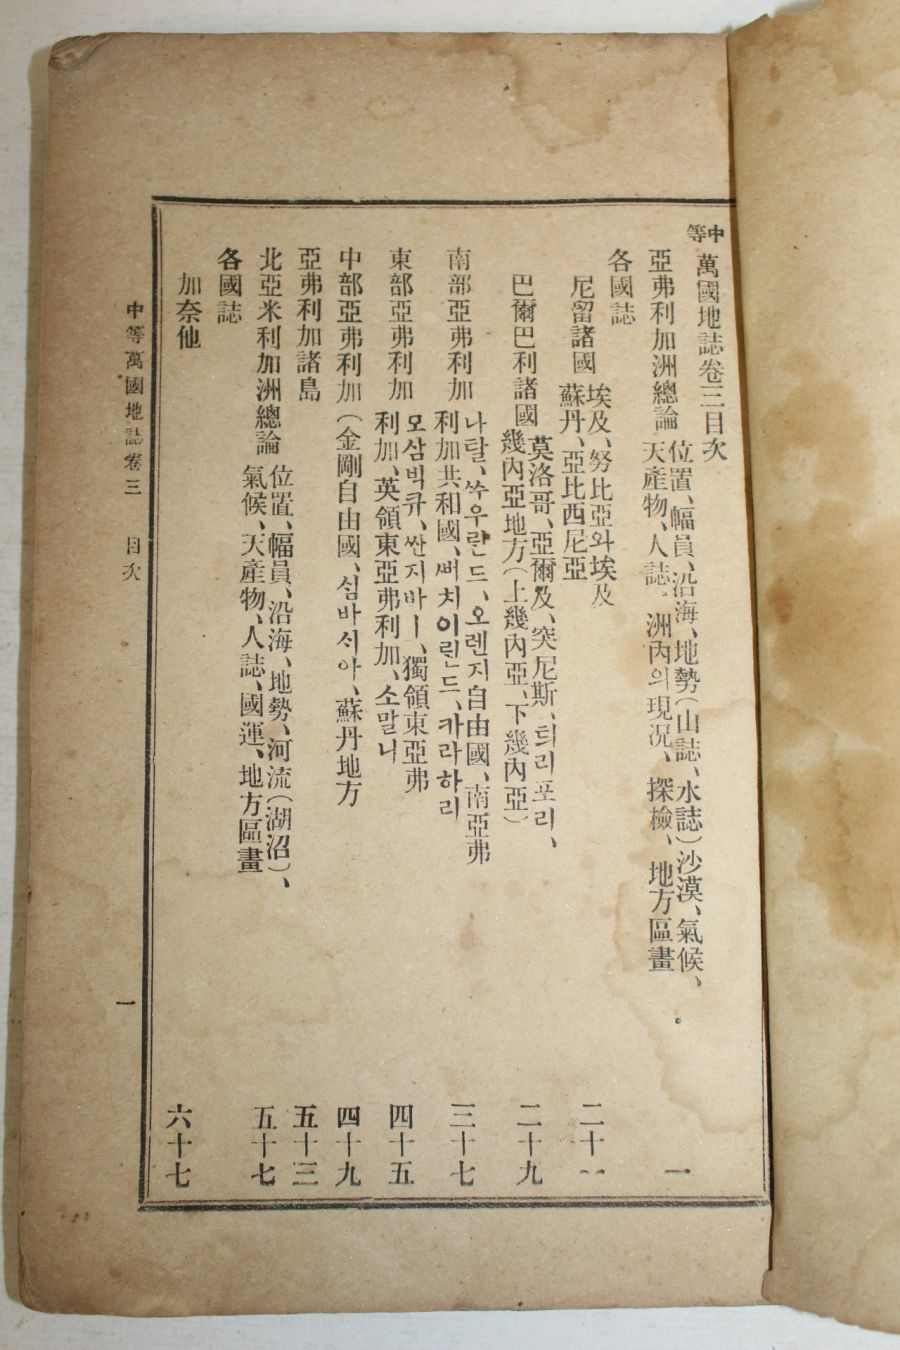 中等萬國地誌卷三目次
亞弗利加洲總論 位置、幅員、沿海、地勢(山誌、水誌)沙漠、氣候、
天產物、人誌、洲內의現況、探檢、地方區畫 一
各國誌
尼留諸國 埃及、努比亞와埃及
蘇丹、亞比西尼亞 二十一
巴爾巴利諸國 莫洛哥、亞爾及、突尼斯、틔리포리、
幾內亞地方(上幾內亞、下幾內亞) 二十九
南部亞弗利加 나탈、쑤우란드、오렌지自由國、南亞弗
利加共和國、뻐치이린드、카라하리 三十七
東部亞弗利加 모삼빅큐、싼지바ㅣ、獨領東亞弗
利加、英領東亞弗利加、소말니 四十五
中部亞弗利加 (金剛自由國、심바시아、蘇丹地方 四十九
亞弗利加諸島 五十三
北亞米利加洲總論 位置、幅員、沿海、地勢、河流(湖沼)、
氣候、天產物、人誌、國運、地方區畫 五十七
各國誌
加奈他 六十七
中等萬國地誌卷三 目次 一